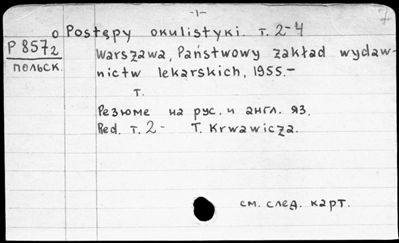 -1-
о Postępy okulistyki. т. 2-4
P 8572
польск.
Warszawa, Państwowy zakład wydaw-
nictw lekarskich, 1955.-
т.
Резюме на рус. и англ. яз.
Red. т. 2- T. Krwawicza.
см. след. карт.